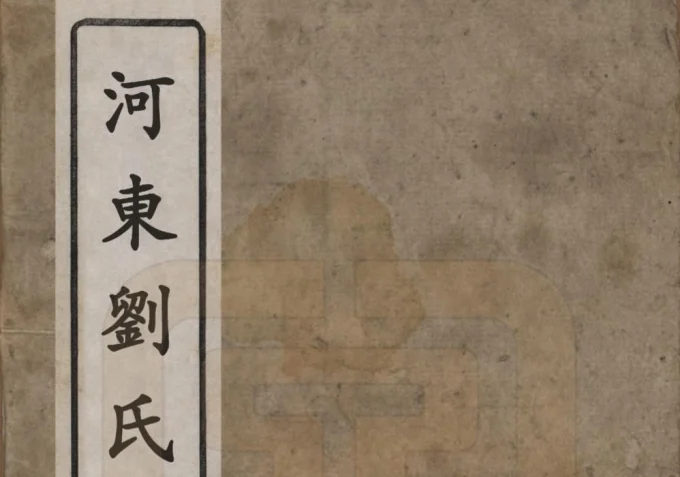 河東劉氏